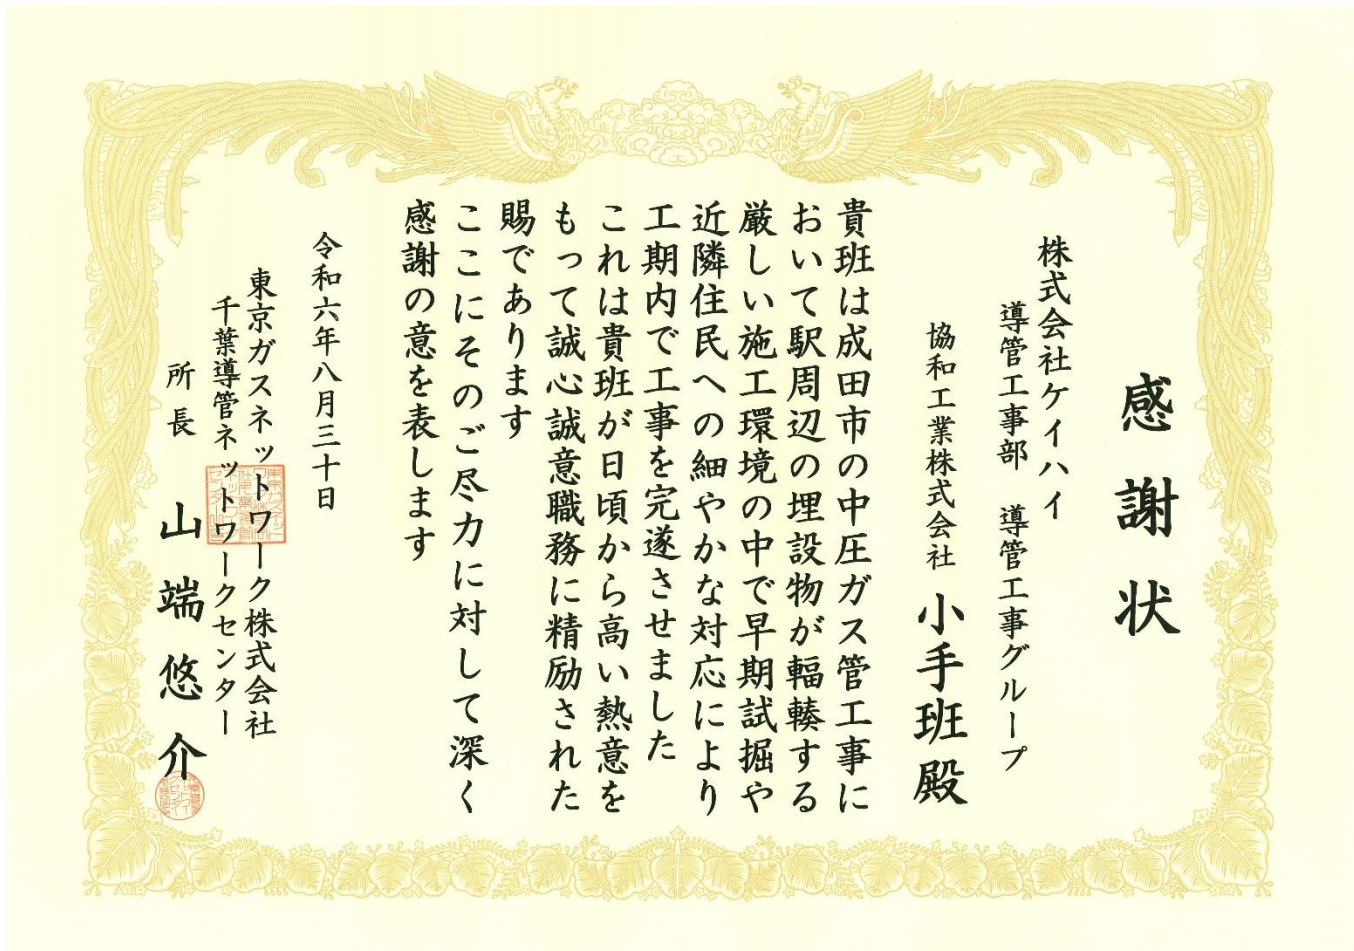 感謝状
株式会社ケイハイ
導管工事部　導管工事グループ
協和工業株式会社　小手班殿
貴班は成田市の中圧ガス管工事に
おいて駅周辺の埋設物が輻輳する
厳しい施工環境の中で早期試掘や
近隣住民への細やかな対応により
工期内で工事を完遂させました
これは貴班が日頃から高い熱意を
もって誠心誠意職務に精励された
賜であります
ここにそのご尽力に対して深く
感謝の意を表します
令和六年八月三十日
東京ガスネットワーク株式会社
千葉導管ネットワークセンター
所長　山端悠介